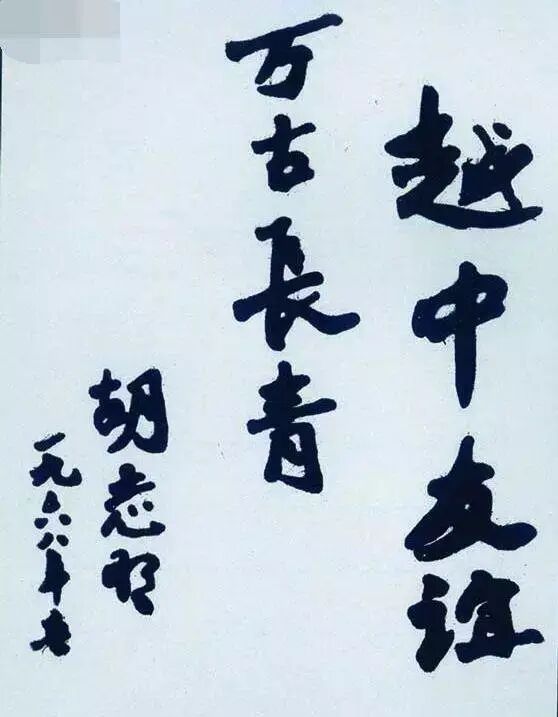 越中友谊
万古長青
胡志明
一九六八年春